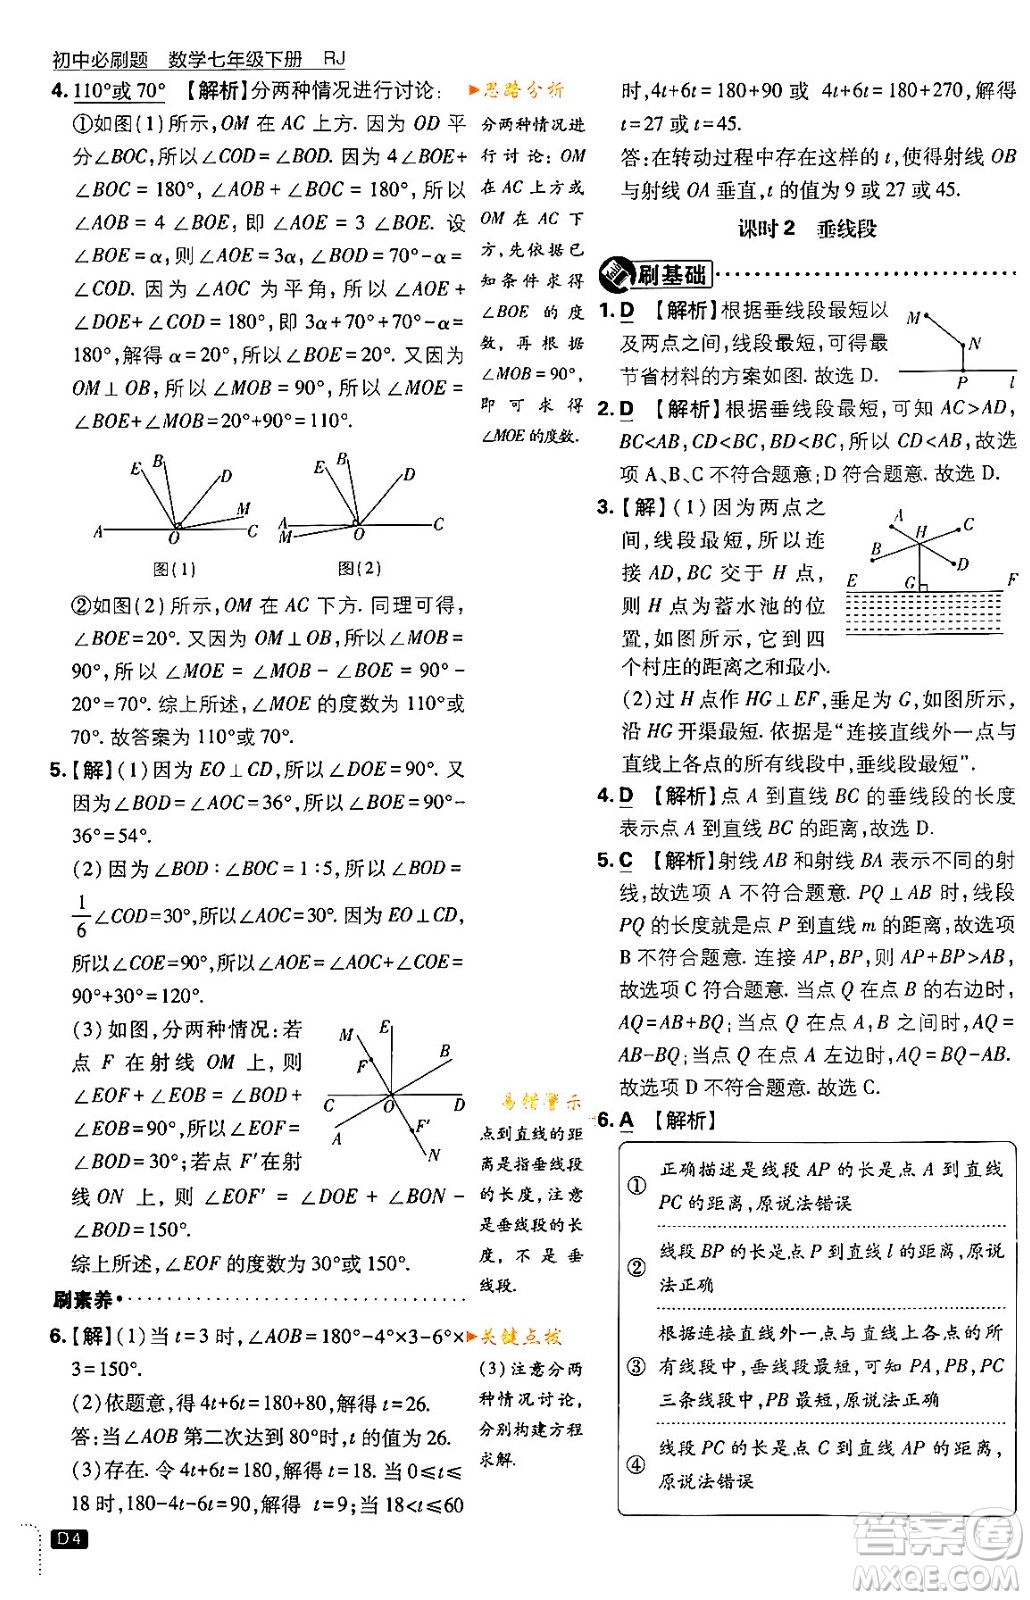 初中必刷题 数学七年级下册 RJ
4. 110°或 70° 【解析】分两种情况进行讨论：
①如图(1)所示，OM 在 AC 上方. 因为 OD 平
分∠BOC，所以∠COD=∠BOD. 因为 4∠BOE+
∠BOC = 180°，∠AOB + ∠BOC = 180°，所以
∠AOB = 4 ∠BOE，即 ∠AOE = 3 ∠BOE. 设
∠BOE=α，则 ∠AOE = 3α，∠BOD = ∠COD =
70°. 因为 ∠AOC 为平角，所以 ∠AOE +
∠DOE+∠COD = 180°，即 3α+70°+α+70° =
180°，解得 α=20°，所以∠BOE=20°. 又因为
OM⊥OB，所以∠MOB = 90°，所以∠MOE =
∠BOE+∠MOB=20°+90°=110°.
E B D M A O C
图(1)
E B D A M O C
图(2)
②如图(2)所示，OM 在 AC 下方. 同理可得，
∠BOE=20°. 又因为 OM⊥OB，所以∠MOB =
90°，所以 ∠MOE = ∠MOB - ∠BOE = 90° -
20°=70°. 综上所述，∠MOE 的度数为 110°或
70°. 故答案为 110°或 70°.
5.【解】(1)因为 EO⊥CD，所以∠DOE=90°. 又
因为∠BOD=∠AOC=36°，所以∠BOE=90°-
36°=54°.
(2) 因为∠BOD：∠BOC = 1：5，所以∠BOD =
1/6∠COD=30°，所以∠AOC=30°. 因为 EO⊥CD，
所以∠COE=90°，所以∠AOE=∠COE+∠AOC=
90°+30°=120°.
(3)如图，分两种情况：若
点 F 在射线 OM 上，则
∠EOF = ∠EOB = ∠DOE -
∠BOD=90°，所以∠EOF=
∠BOD=30°；若点 F′在射
线 ON 上，则 ∠EOF′ = ∠DOE + ∠BON -
∠BOD=150°.
综上所述，∠EOF 的度数为 30°或 150°.
M E F B C O D A F′ N
刷素养
6.【解】(1)当 t=3 时，∠AOB=180°-4°×3-6°×
3=150°.
(2)依题意，得 4t+6t=180+80，解得 t=26.
答：当∠AOB 第二次达到 80°时，t 的值为 26.
(3)存在. 令 4t+6t=180，解得 t=18. 当 0≤t≤
18 时，180-4t-6t=90，解得 t=9；当 18<t≤60
D4
思路分析
分两种情况进
行讨论：OM
在 AC 上方或
OM 在 AC 下
方，先依据已
知条件求得
∠BOE 的度
数，再根据
∠MOB=90°，
即可求得
∠MOE 的度数.
易错警示
点到直线的距
离是指垂线段
的长度，注意
是垂线段的长
度，不是垂
线段.
关键点拨
(3) 注意分两
种情况讨论，
分别构建方程
求解.
时，4t+6t=180+90 或 4t+6t=180+270，解得
t=27 或 t=45.
答：在转动过程中存在这样的 t，使得射线 OB
与射线 OA 垂直，t 的值为 9 或 27 或 45.
课时2 垂线段
刷基础
1. D 【解析】根据垂线段最短以
及两点之间，线段最短，可得最
节省材料的方案如图. 故选 D.
M N P l
2. D 【解析】根据垂线段最短，可知 AC>AD，
BC<AB，CD<BC，BD<BC，所以 CD<AB，故选
项 A、B、C 不符合题意；D 符合题意. 故选 D.
3.【解】(1)因为两点之
间，线段最短，所以连
接 AD，BC 交于 H 点，
则 H 点为蓄水池的位
置，如图所示，它到四
个村庄的距离之和最小.
A H C B D E G F
(2)过 H 点作 HG⊥EF，垂足为 G，如图所示，
沿 HG 开渠最短. 依据是“连接直线外一点与
直线上各点的所有线段中，垂线段最短”.
4. D 【解析】点 A 到直线 BC 的垂线段的长度
表示点 A 到直线 BC 的距离，故选 D.
5. C 【解析】射线 AB 和射线 BA 表示不同的射
线，故选项 A 不符合题意. PQ⊥AB 时，线段
PQ 的长度才是点 P 到直线 m 的距离，故选项
B 不符合题意. 连接 AP，BP，则 AP+BP>AB，
故选项 C 符合题意. 当点 Q 在点 B 的右边时，
AQ=AB+BQ；当点 Q 在点 A，B 之间时，AQ=
AB-BQ；当点 Q 在点 A 左边时，AQ=BQ-AB.
故选项 D 不符合题意. 故选 C.
6. A 【解析】
① 正确描述是线段 AP 的长是点 A 到直线
PC 的距离，原说法错误
② 线段 BP 的长是点 P 到直线 l 的距离，原说
法正确
③ 根据连接直线外一点与直线上各点的所
有线段中，垂线段最短，可知 PA，PB，PC
三条线段中，PB 最短，原说法正确
④ 线段 PC 的长是点 C 到直线 AP 的距离，
原说法错误
答案圈
MXQE.COM